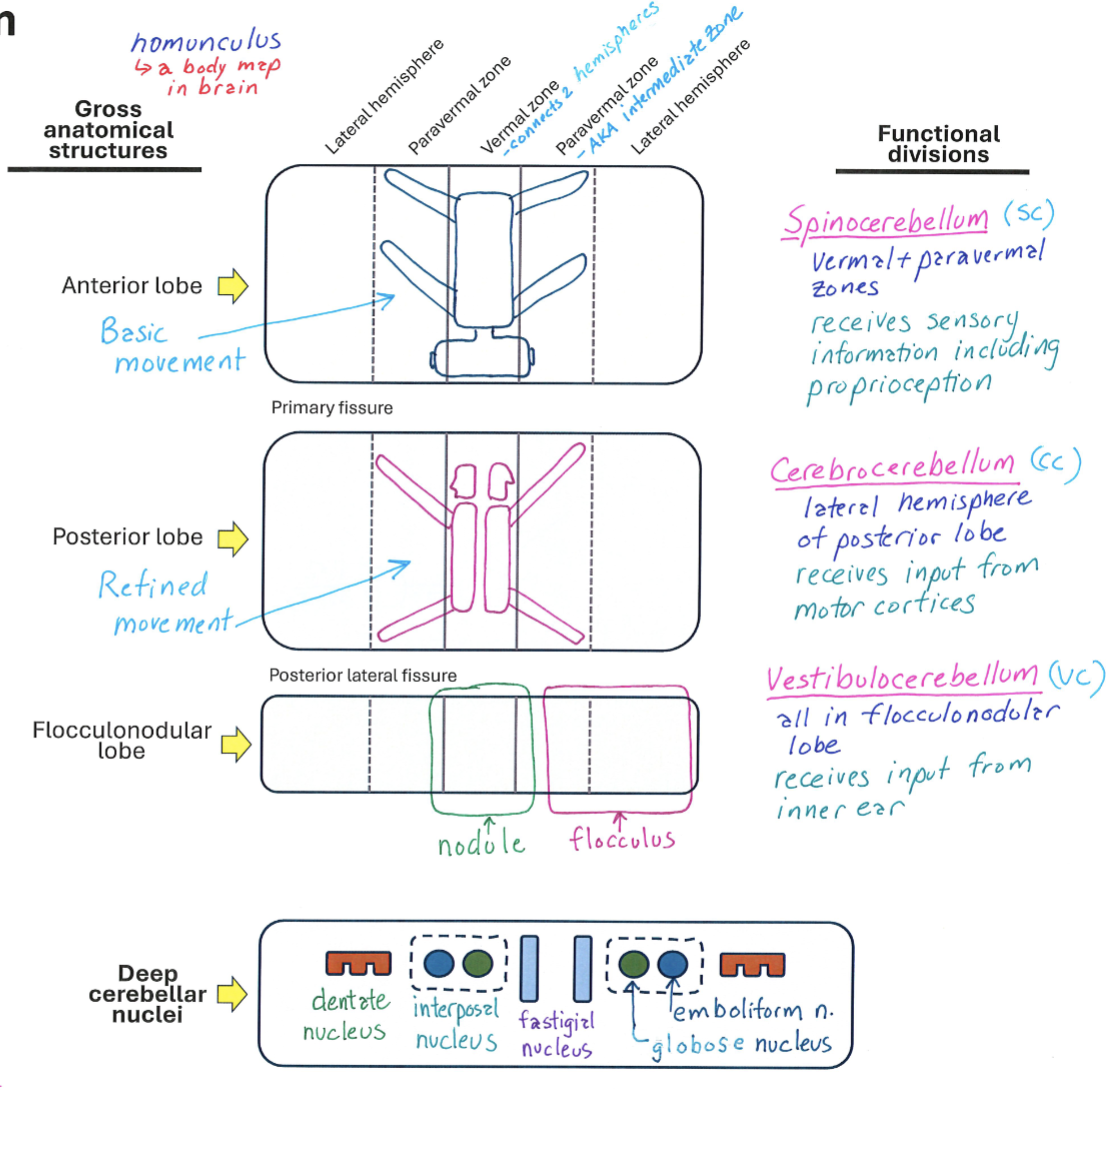 n
homunculus
↳ a body map
in brain
Gross
anatomical
structures
Lateral hemisphere
Paravermal zone
Vermal zone
- connects 2 hemispheres
Paravermal zone
- AKA intermediate zone
Lateral hemisphere
Functional
divisions
Anterior lobe
Basic
movement
Spinocerebellum (SC)
Vermal + paravermal
zones
receives sensory
information including
proprioception
Primary fissure
Posterior lobe
Refined
movement
Cerebrocerebellum (CC)
lateral hemisphere
of posterior lobe
receives input from
motor cortices
Posterior lateral fissure
Flocculonodular
lobe
nodule
flocculus
Vestibulocerebellum (VC)
all in flocculonodular
lobe
receives input from
inner ear
Deep
cerebellar
nuclei
dentate
nucleus
interposal
nucleus
fastigial
nucleus
emboliform n.
globose nucleus